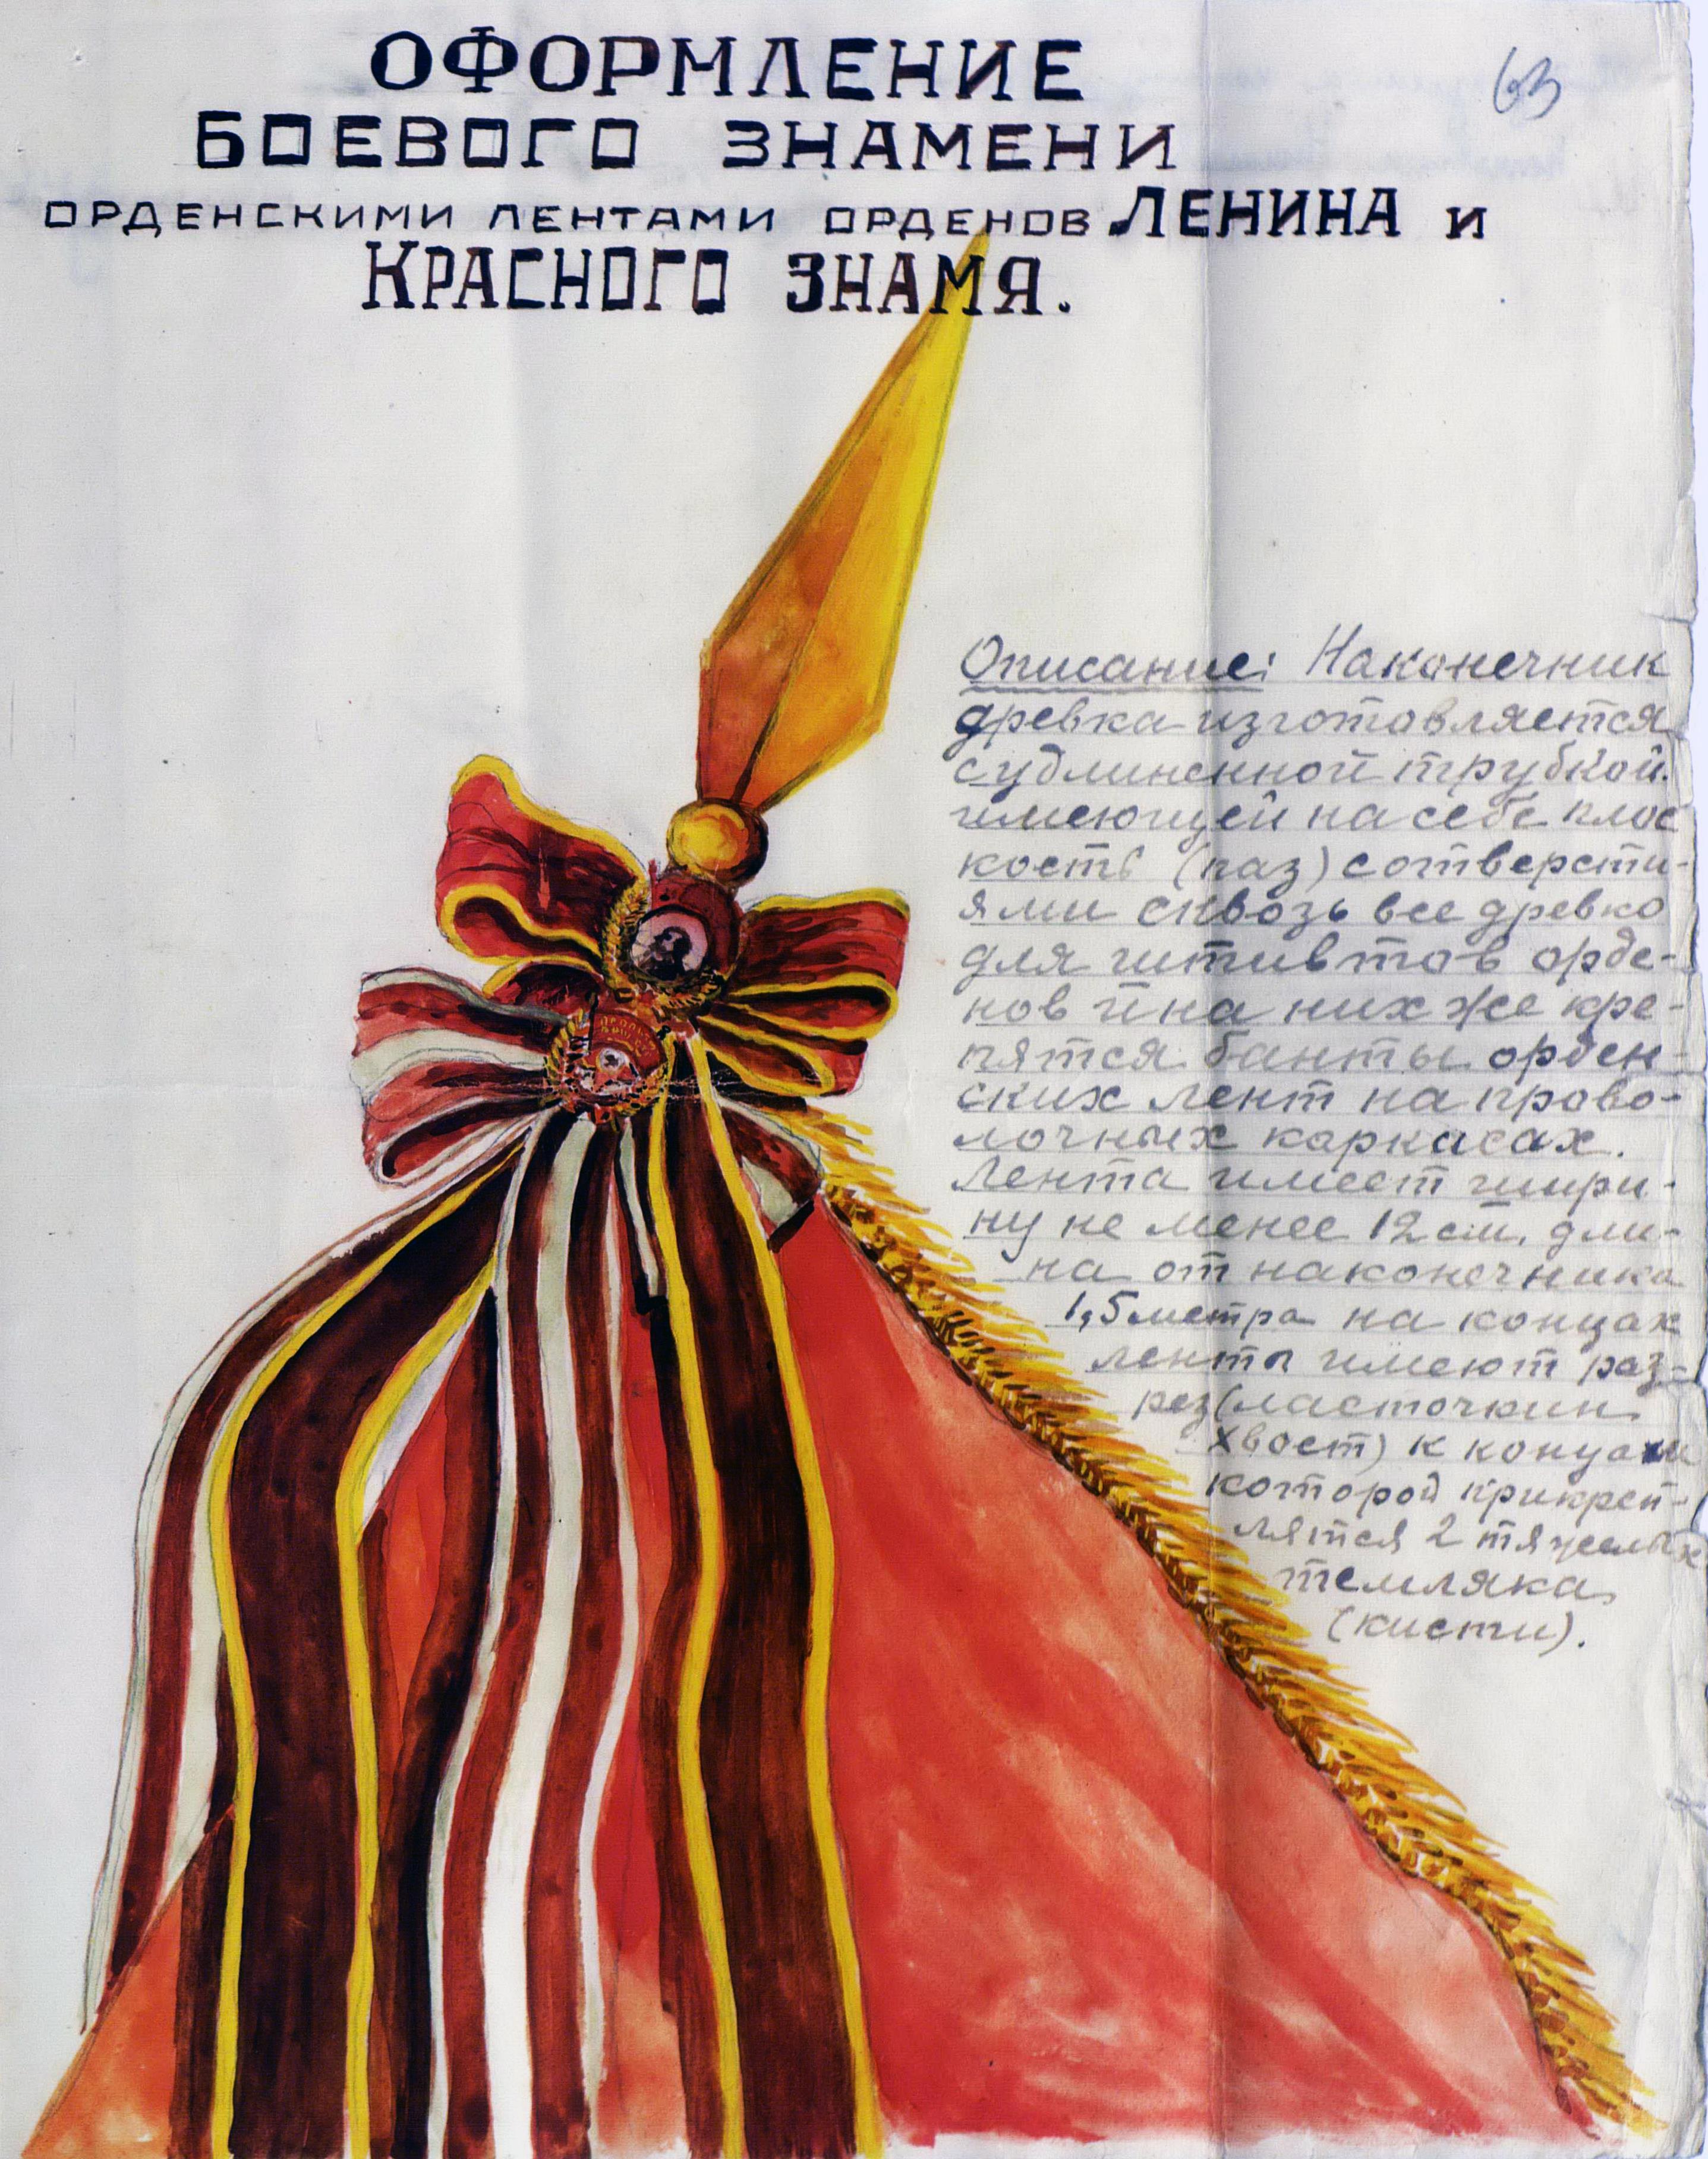 63
ОФОРМЛЕНИЕ
БОЕВОГО ЗНАМЕНИ
ОРДЕНСКИМИ ЛЕНТАМИ ОРДЕНОВ ЛЕНИНА И
КРАСНОГО ЗНАМЯ.
Описание: Наконечник
древка изготовляется
судлиненной трубкой.
имеющей на себе плос
кость (паз) с отверсти-
ями сквозь все древко
для штивтов орде-
нов и на них же кре-
пятся банты орден-
ских лент на прово-
лочных каркасах.
Лента имеет шири-
ну не менее 12 см. дли-
на от наконечника
1,5 метра на концах
ленты имеют раз-
рез (ласточкин
хвост) к концам
которой прикреп-
лятся 2 тяжелых
темляка
(кисти).